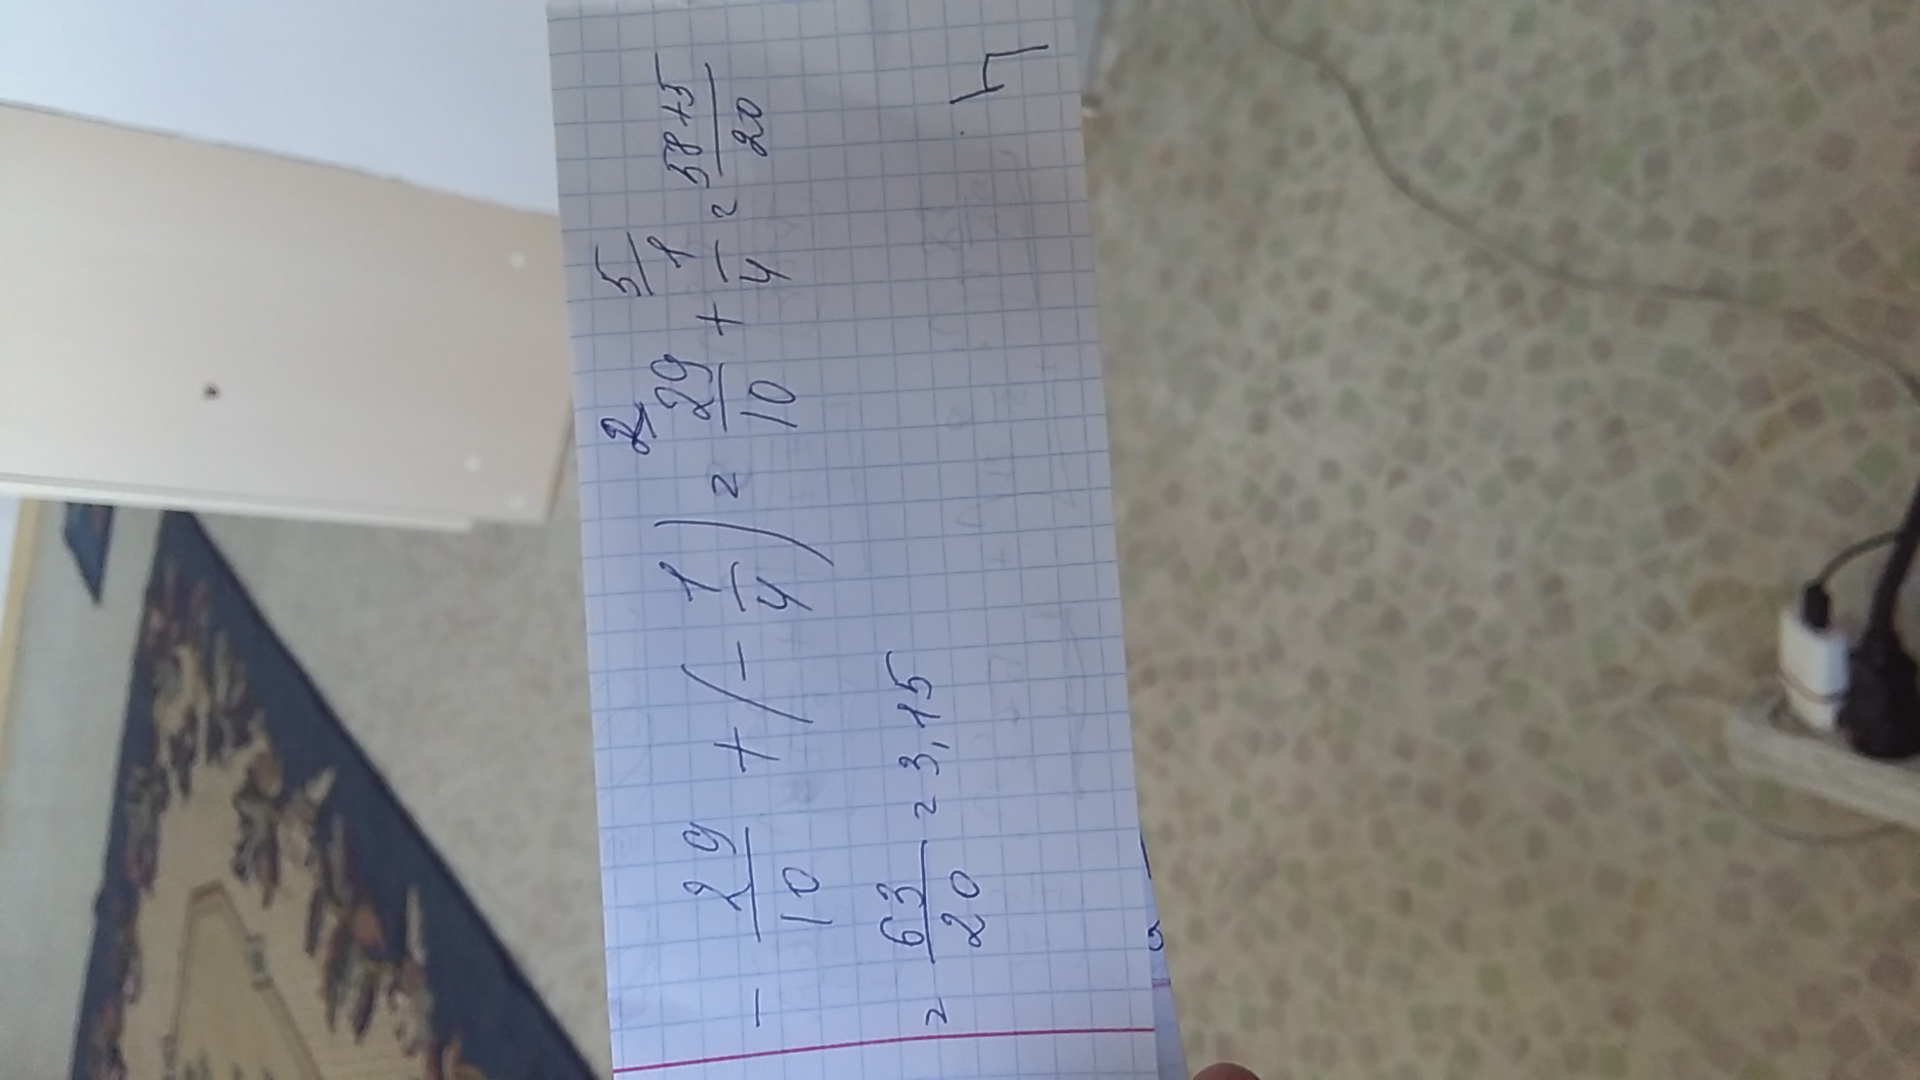 - 29/10 + (- 1/4) = 29/10 + 1/4 = 58+5/20
2 5
= 63/20 = 3,15